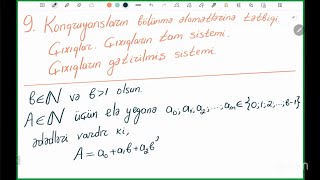 9. Konqruyensların bölünmə əlamətlərinə tətbiqi.
Çıxıqlar. Çıxıqların tam sistemi.
Çıxıqların gətirilmiş sistemi.
b∈ℕ və b>1 olsun.
A∈ℕ üçün elə yeganə a₀, a₁, a₂, ..., aₘ∈{0;1;2;...;b-1}
ədədləri vardır ki,
A = a₀+a₁b+a₂b²